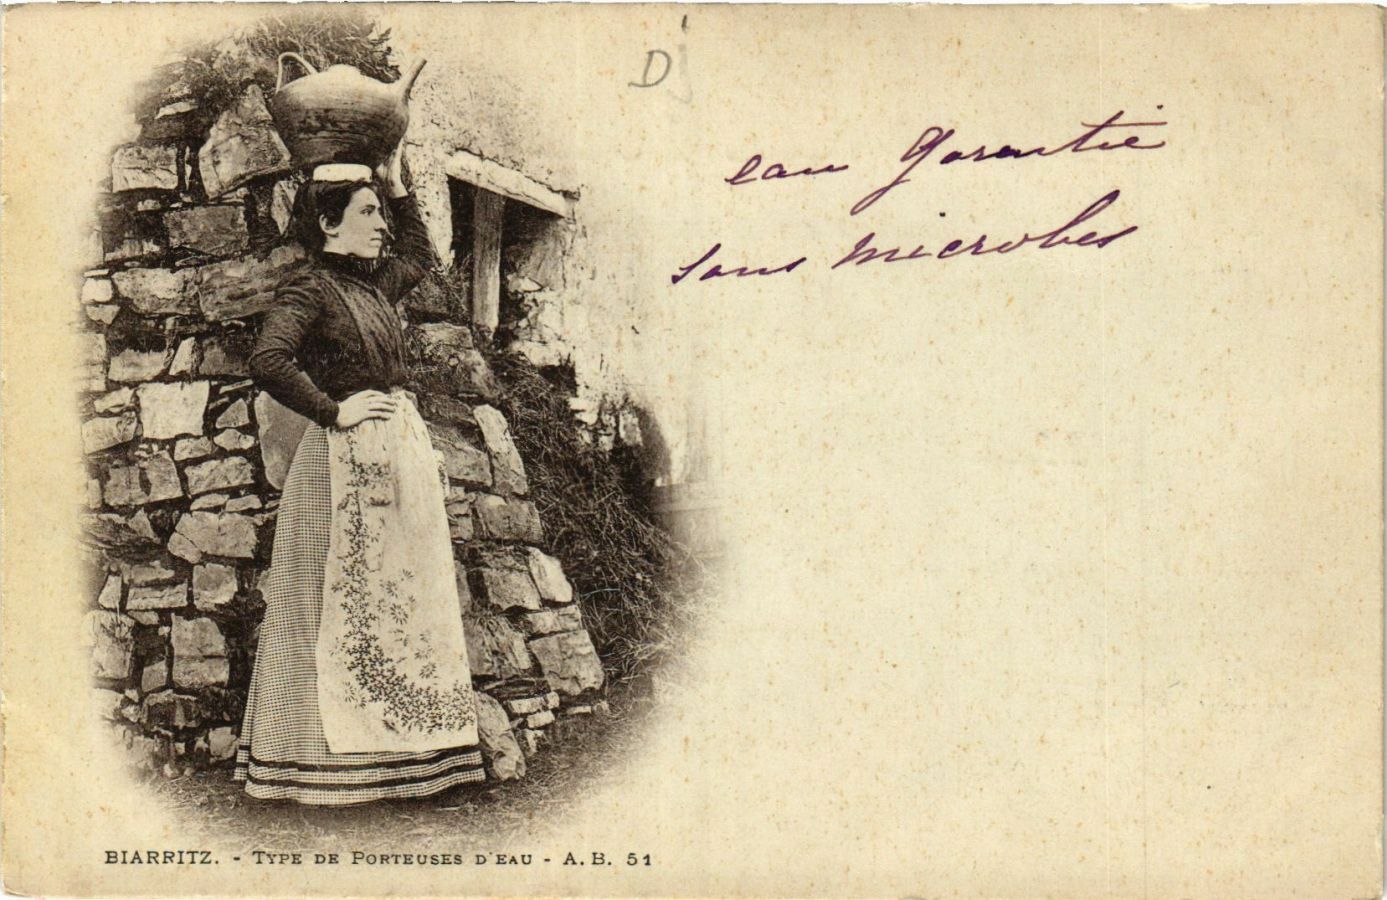 Dj
eau garantie
sans microbes
BIARRITZ. - TYPE DE PORTEUSES D'EAU - A. B. 51